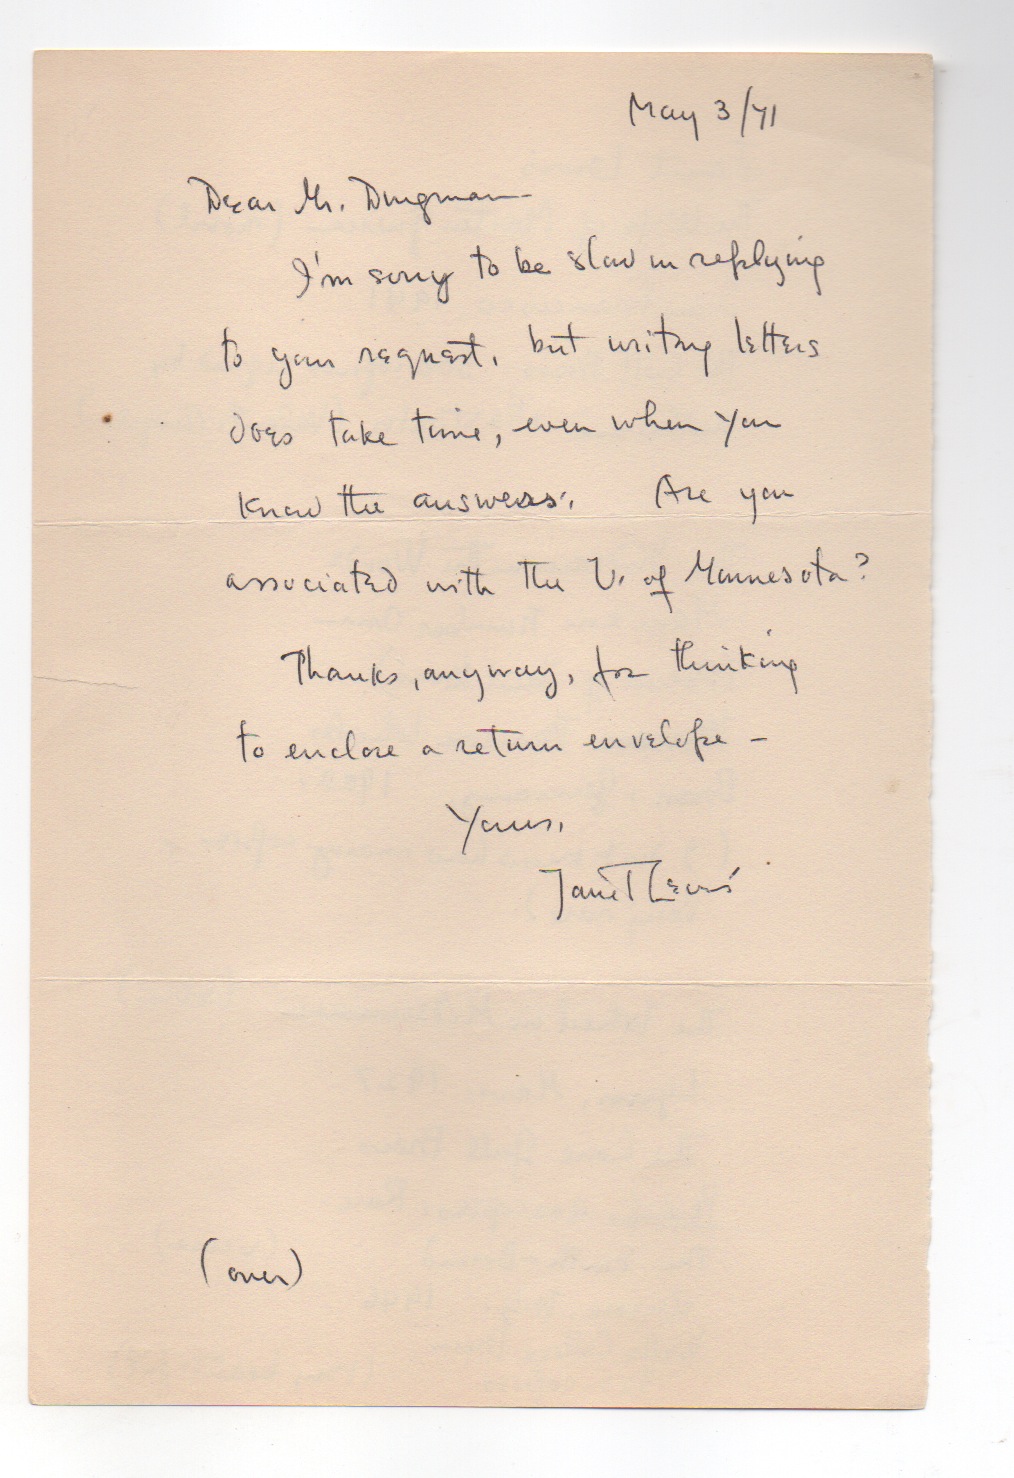 May 3/71
Dear Mr. Dingman—
I'm sorry to be slow in replying
to your request, but writing letters
does take time, even when you
know the answers. Are you
associated with the U. of Minnesota?
Thanks, anyway, for thinking
to enclose a return envelope –
Yours,
Janet Lewis
(over)